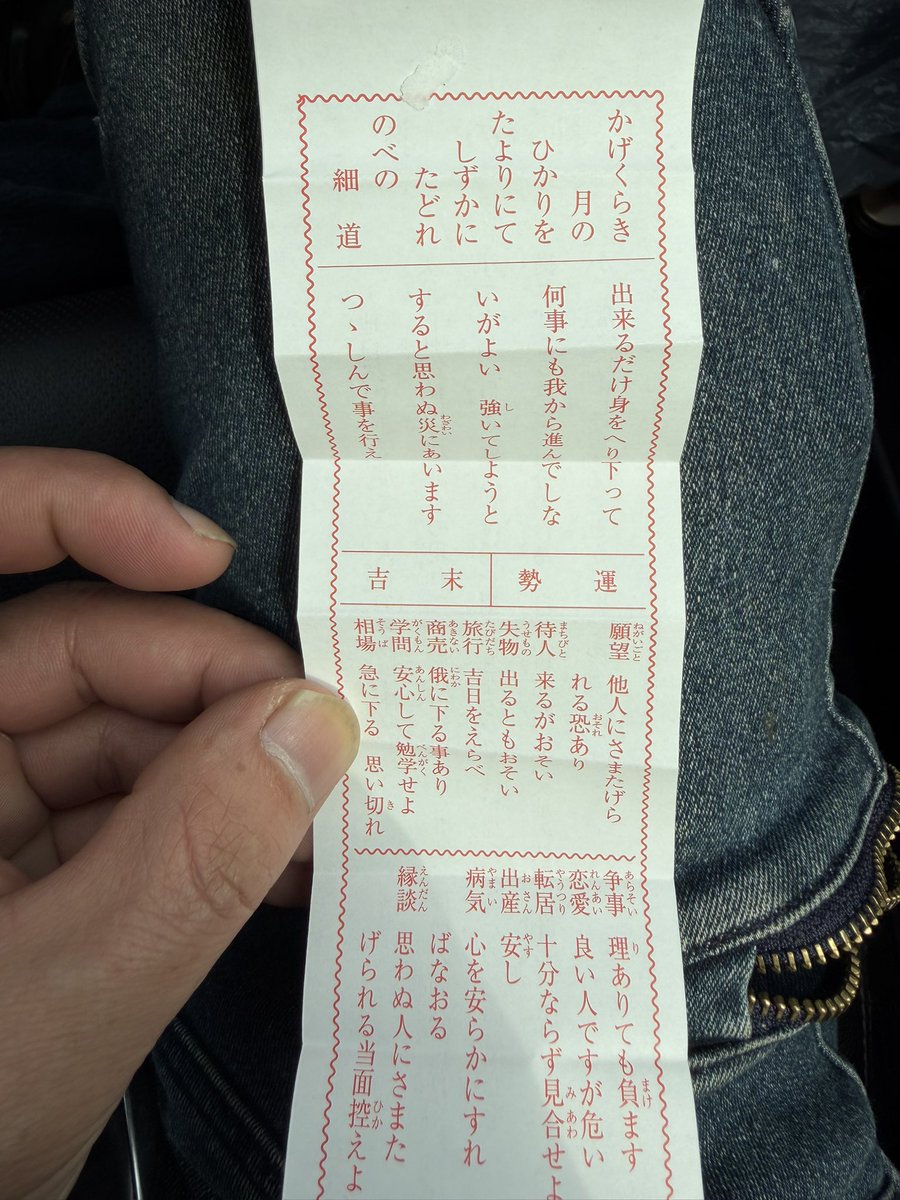 かげくらき
月の
ひかりを
たよりにて
しずかに
たどれ
のべの
細道
出来るだけ身をへり下って
何事にも我から進んでしな
いがよい 強いてしようと
すると思わぬ災にあいます
つゝしんで事を行え
運勢 末吉
願望 他人にさまたげら
れる恐あり
待人 来るがおそい
失物 出るともおそい
旅行 吉日をえらべ
商売 俄に下る事あり
学問 安心して勉学せよ
相場 急に下る 思い切れ
争事 理ありても負ます
恋愛 良い人ですが危い
転居 十分ならず見合せよ
出産 安し
病気 心を安らかにすれ
ばなおる
縁談 思わぬ人にさまた
げられる当面控えよ